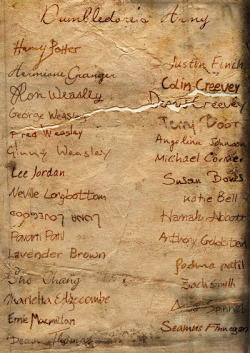 Dumbledore's Army
Harry Potter
Hermione Granger
Ron Weasley
George Weasley
Fred Weasley
Ginny Weasley
Lee Jordan
Neville Longbottom
Parvati Patil
Lavender Brown
Cho Chang
Marietta Edgecombe
Ernie Macmillan
Dean
Justin Finch
Colin Creevey
Dennis Creevey
Terry Boot
Angelina Johnson
Michael Corner
Susan Bones
Katie Bell
Hannah Abbott
Anthony Goldstein
Padma patil
Zach Smith
Seamus Finnegan